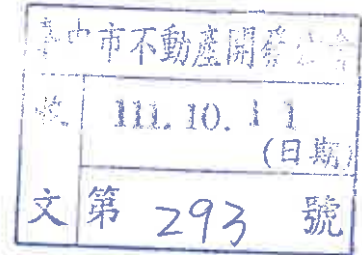 臺中市不動產開發公會
收
111. 10. 11
(日期)
文 第 293 號